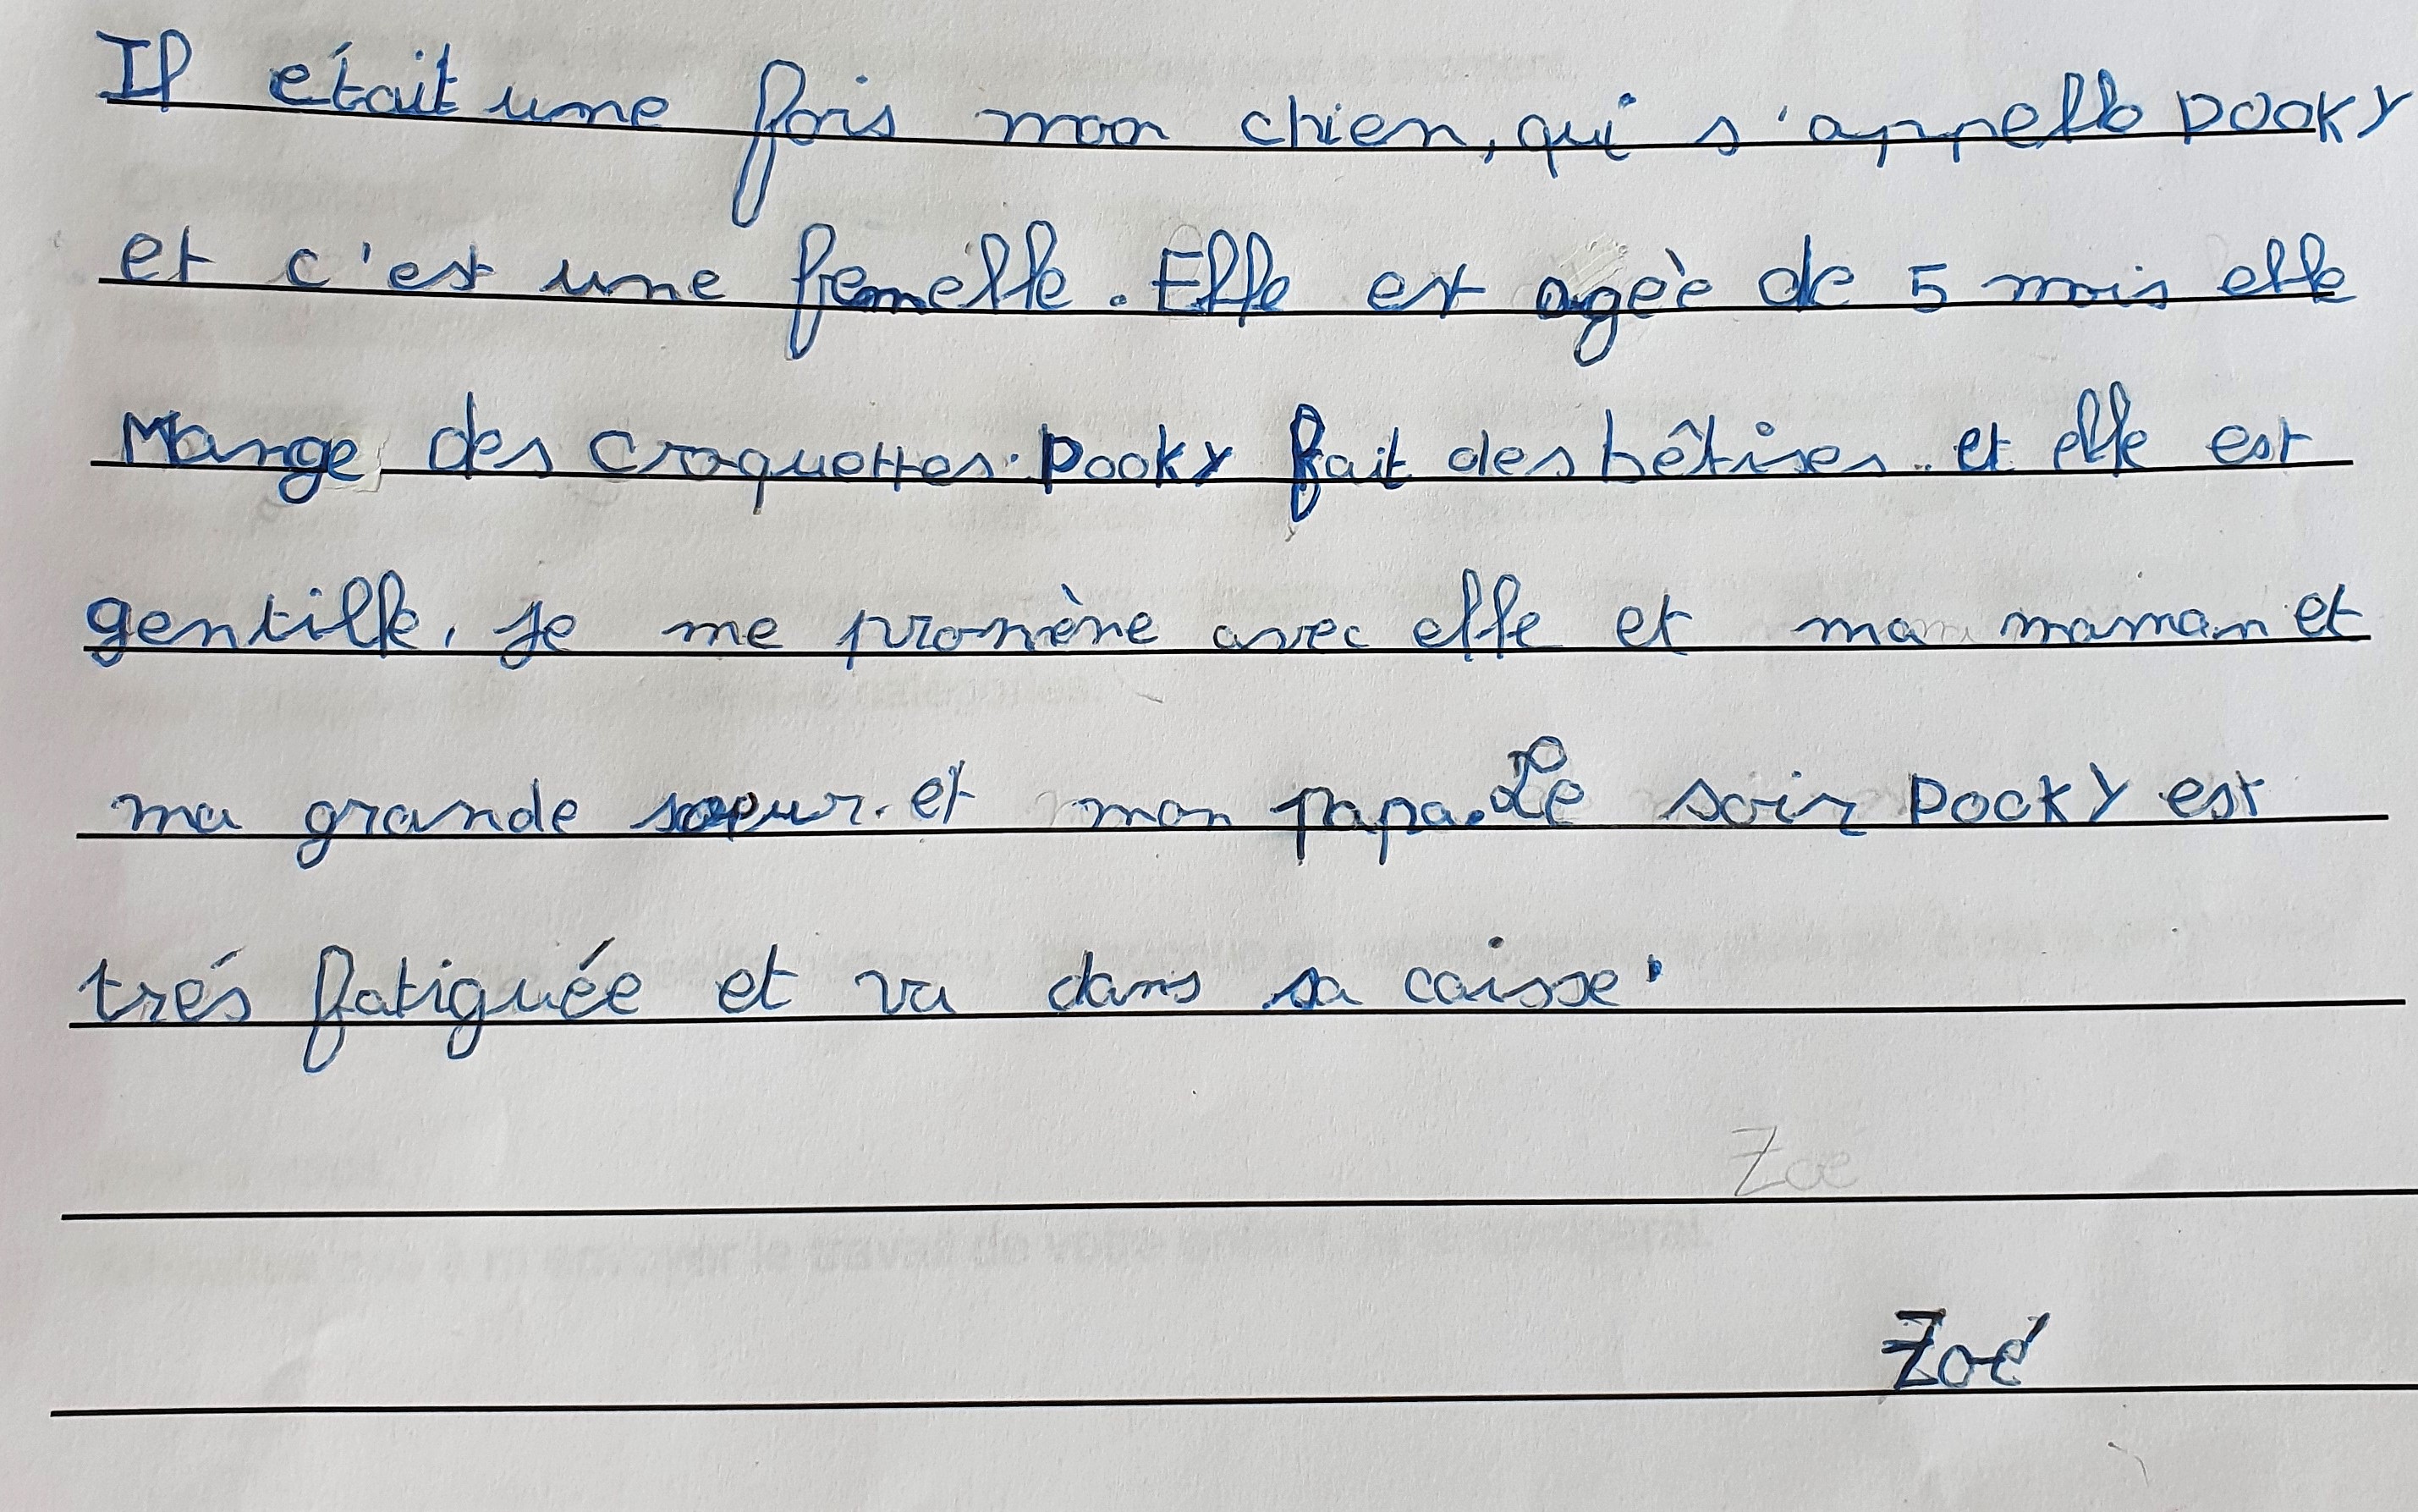 Il était une fois mon chien, qui s'appelle POOKY
et c'est une femelle. Elle est agèe de 5 mois elle
Mange des croquettes. POOKY fait des bêtises.. et elle est
gentille. Je me promène avec elle et ma maman et
ma grande soeur. et mon papa. Le soir POOKY est
trés fatiguée et va dans sa caisse.
Zoé
Zoé